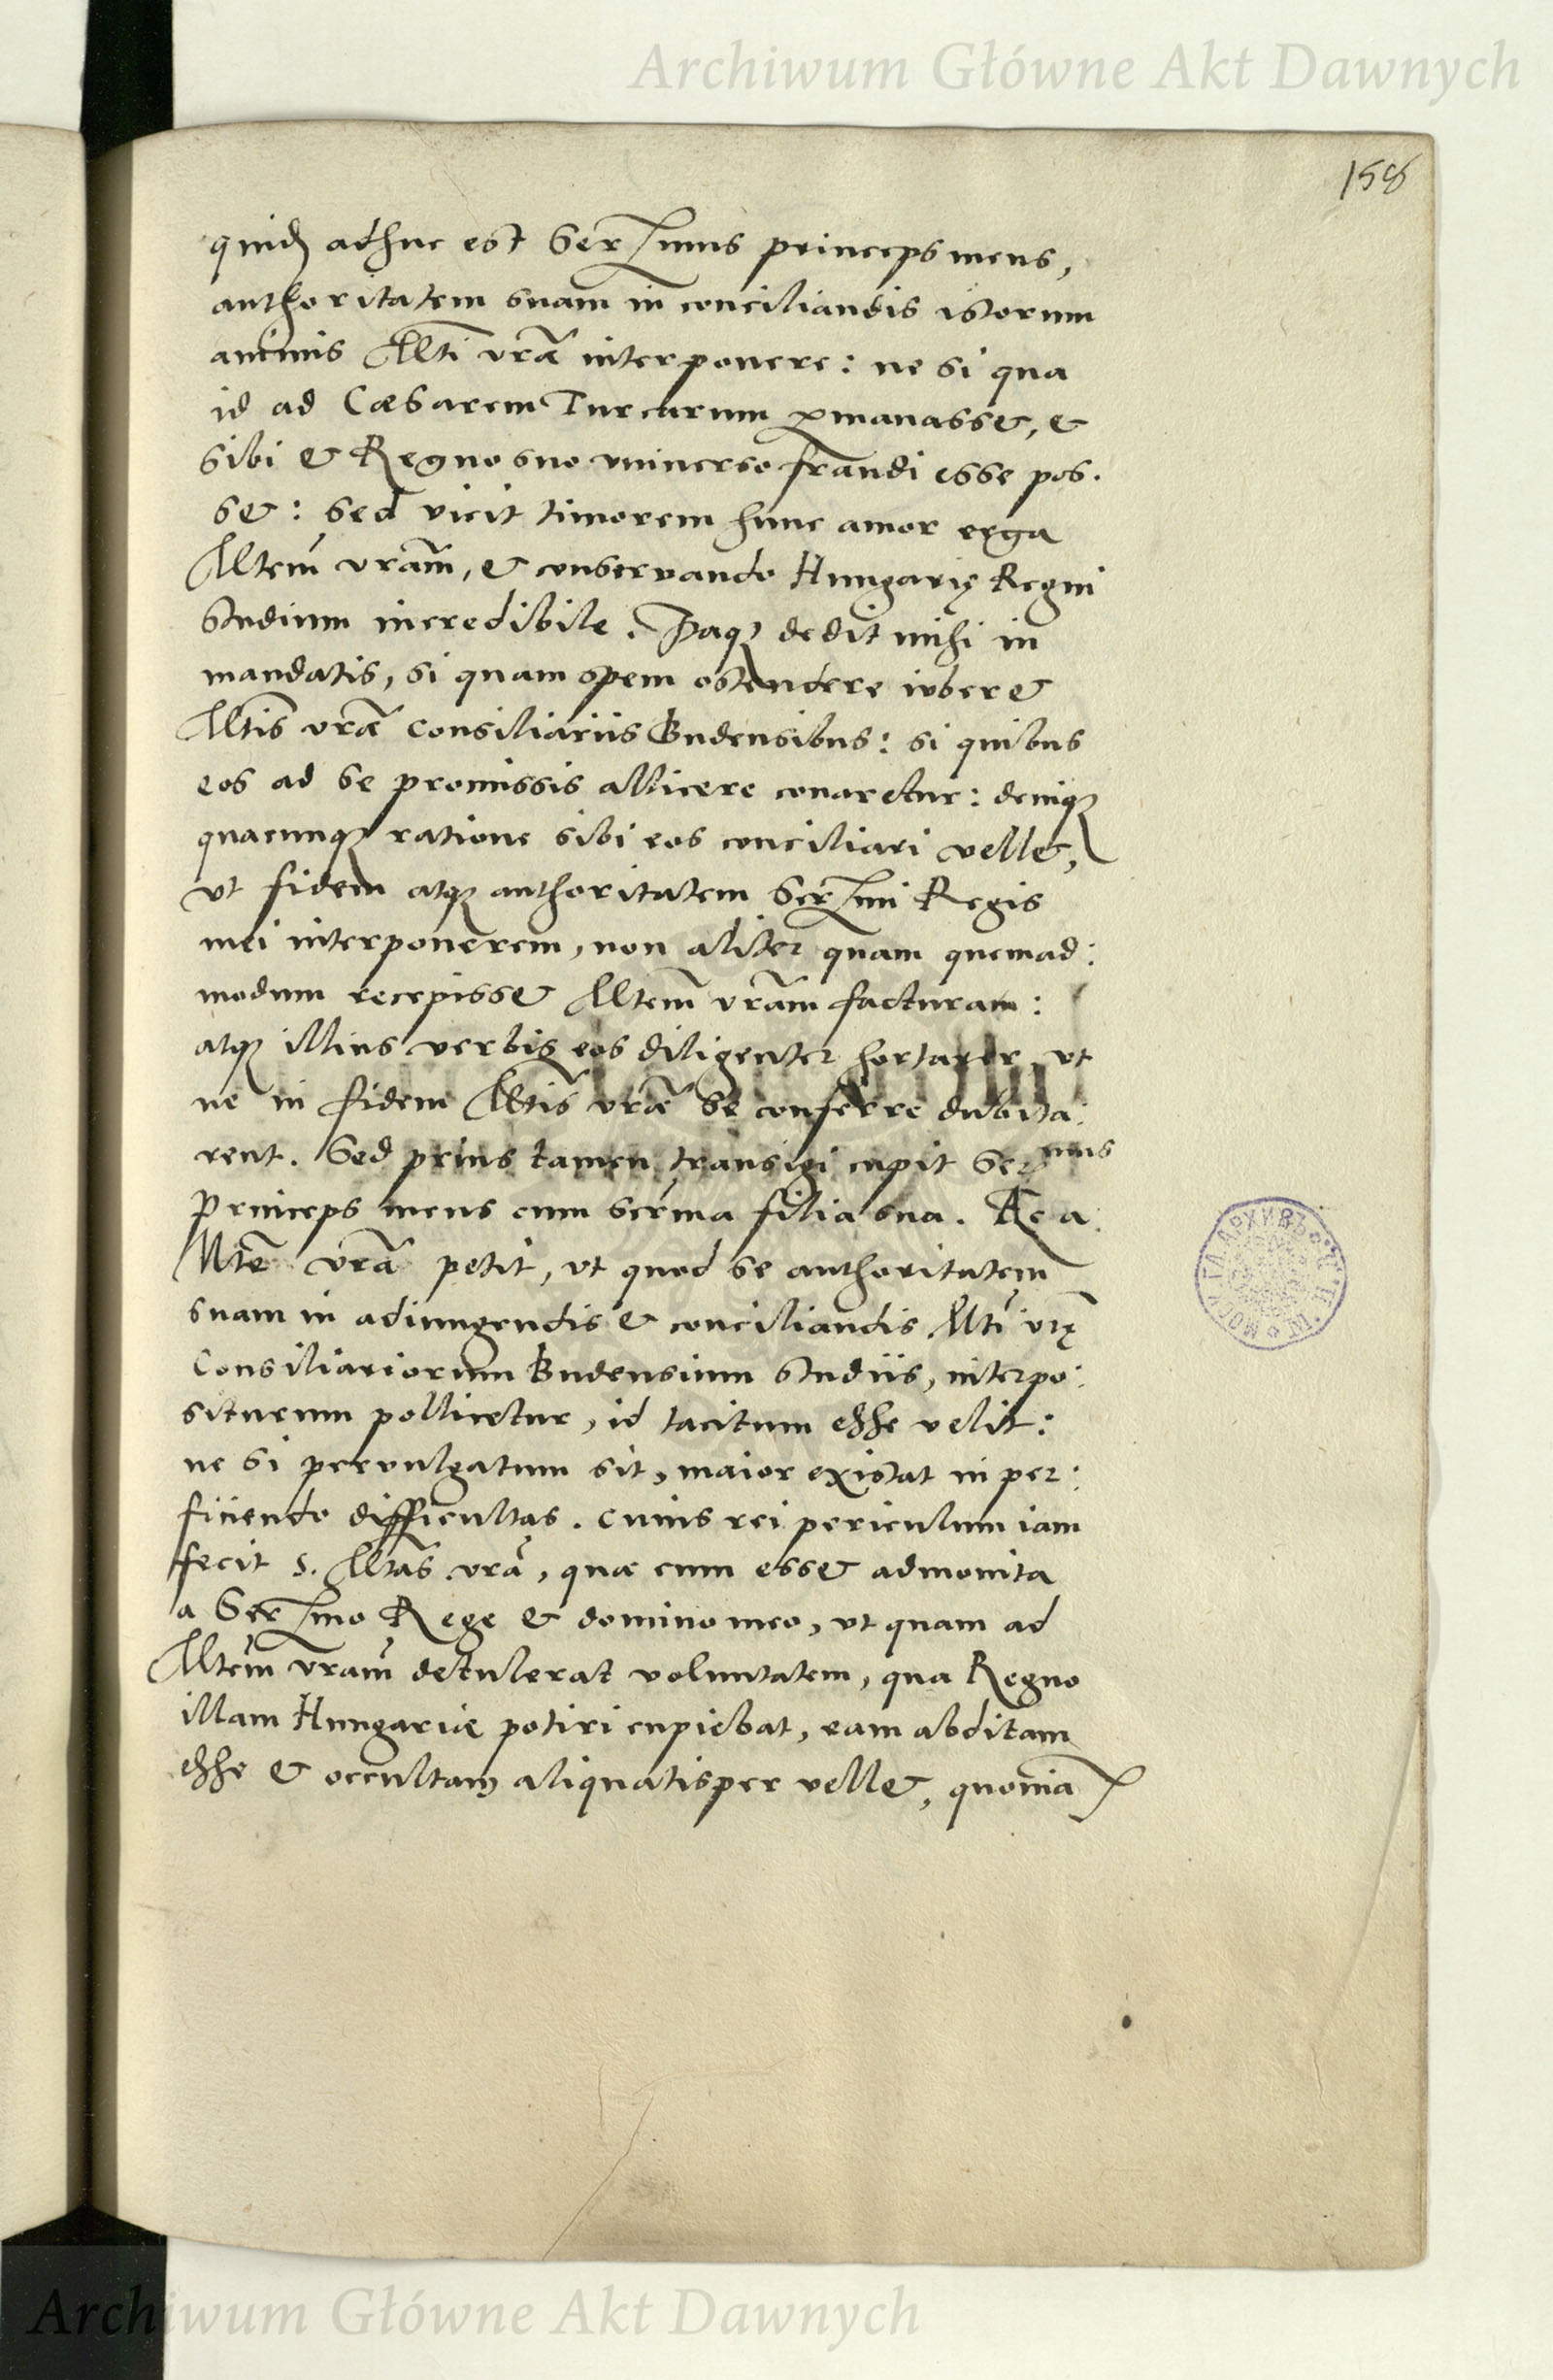 Archiwum Główne Akt Dawnych
158
quidē adhuc est Ser᷉mus princeps meus,
authoritatem suam in conciliandis istorum
animis Mti vrã interponere: ne si qua
id ad Cæsarem Turcarum ꝑmanasset, et
sibi et Regno suo vniuerso fraudi esse pos.
set: sed vicit timorem hunc amor erga
Mtem vram, et conservando Hungarię Regni
studium incredibile. Itaqꝫ dedit mihi in
mandatis, si quam spem ostendere iuberet
Mtis vrã Consiliariis Budensibus: si quibus
eos ad se promissis allicere conaretur: deniqꝫ
quacunqꝫ ratione sibi eos conciliari vellet,
vt fidem atqꝫ authoritatem Ser᷉mi Regis
mei interponerem, non aliter quam quemad:
modum recepisset Mtem vram facturam:
atqꝫ illius verbis eos diligenter hortarer, vt
ne in fidem Mtis vræ se conferre dubita:
rent. Sed prius tamen transigi cupit Sermus
Princeps meus cum serma filia sua. Et a
Mte vrã petit, vt quod se authoritatem
suam in adiungendis et conciliandis Mti vrę
Consiliariorum Budensium studiis, interpo:
siturum pollicetur, id tacitum esse velit:
ne si peruulgatum sit, maior existat in per:
ficiendo difficultas. cuius rei periculum iam
fecit S. Mtas vrã, quæ cum esset admonita
a Ser᷉mo Rege et domino meo, vt quam ad
Mtem vram detulerat voluntatem, qua Regno
illam Hungariæ potiri cupiebat, eam abditam
esse et occultam aliquatisper vellet, quoniã
Archiwum Główne Akt Dawnych